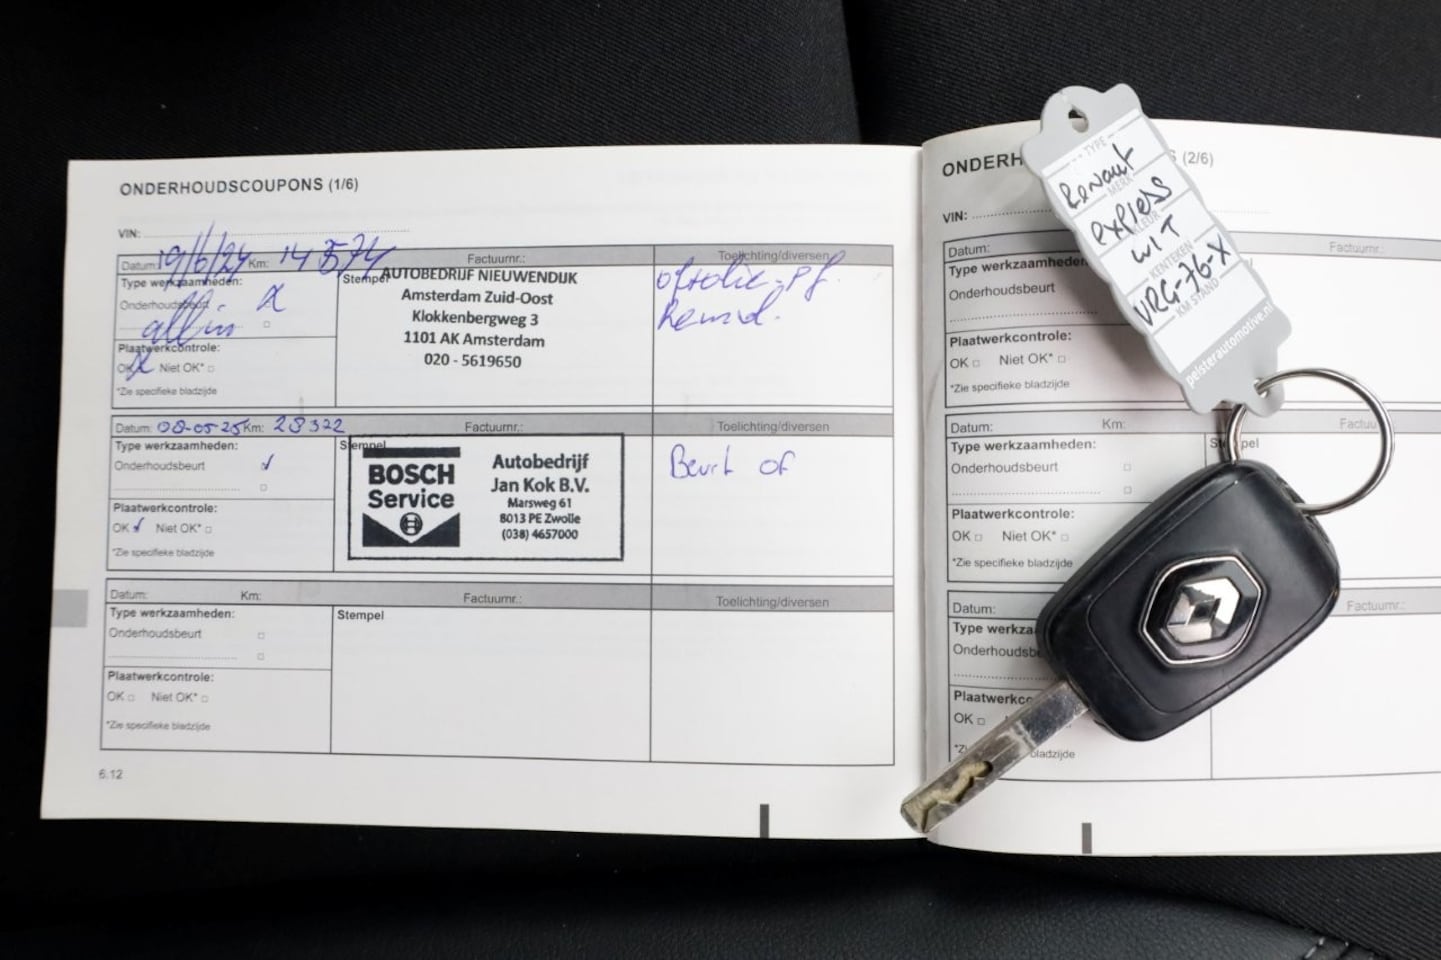 ONDERHOUDSCOUPONS (1/6)
VIN:
Datum: 19/6/24 Km: 14574 Factuurnr.: Toelichting/diversen
Type werkzaamheden:
Onderhoudsbeurt X
allin
Plaatwerkcontrole:
OK X Niet OK*
*Zie specifieke bladzijde
Stempel
AUTOBEDRIJF NIEUWENDIJK
Amsterdam Zuid-Oost
Klokkenbergweg 3
1101 AK Amsterdam
020 - 5619650
Datum: 08-05-25 Km: 28322 Factuurnr.: Toelichting/diversen
Type werkzaamheden:
Onderhoudsbeurt
Plaatwerkcontrole:
OK Niet OK*
*Zie specifieke bladzijde
Stempel
BOSCH
Service
Autobedrijf
Jan Kok B.V.
Marsweg 61
8013 PE Zwolle
(038) 4657000
Beurt
Datum: Km: Factuurnr.: Toelichting/diversen
Type werkzaamheden:
Onderhoudsbeurt
Plaatwerkcontrole:
OK Niet OK*
*Zie specifieke bladzijde
Stempel
6.12
(2/6)
VIN:
Datum: Factuurnr.:
Type werkzaamheden:
Onderhoudsbeurt
Plaatwerkcontrole:
OK Niet OK*
*Zie specifieke bladzijde
Km:
Type werkzaamheden:
Onderhoudsbeurt
Plaatwerkcontrole:
OK Niet OK*
*Zie specifieke bladzijde
Datum: Factuurnr.:
OK
bladzijde
TYPE
Renault
MERK
express
KLEUR
WIT
KENTEKEN
VRG-76-X
KM STAND
pelsterautomotive.nl